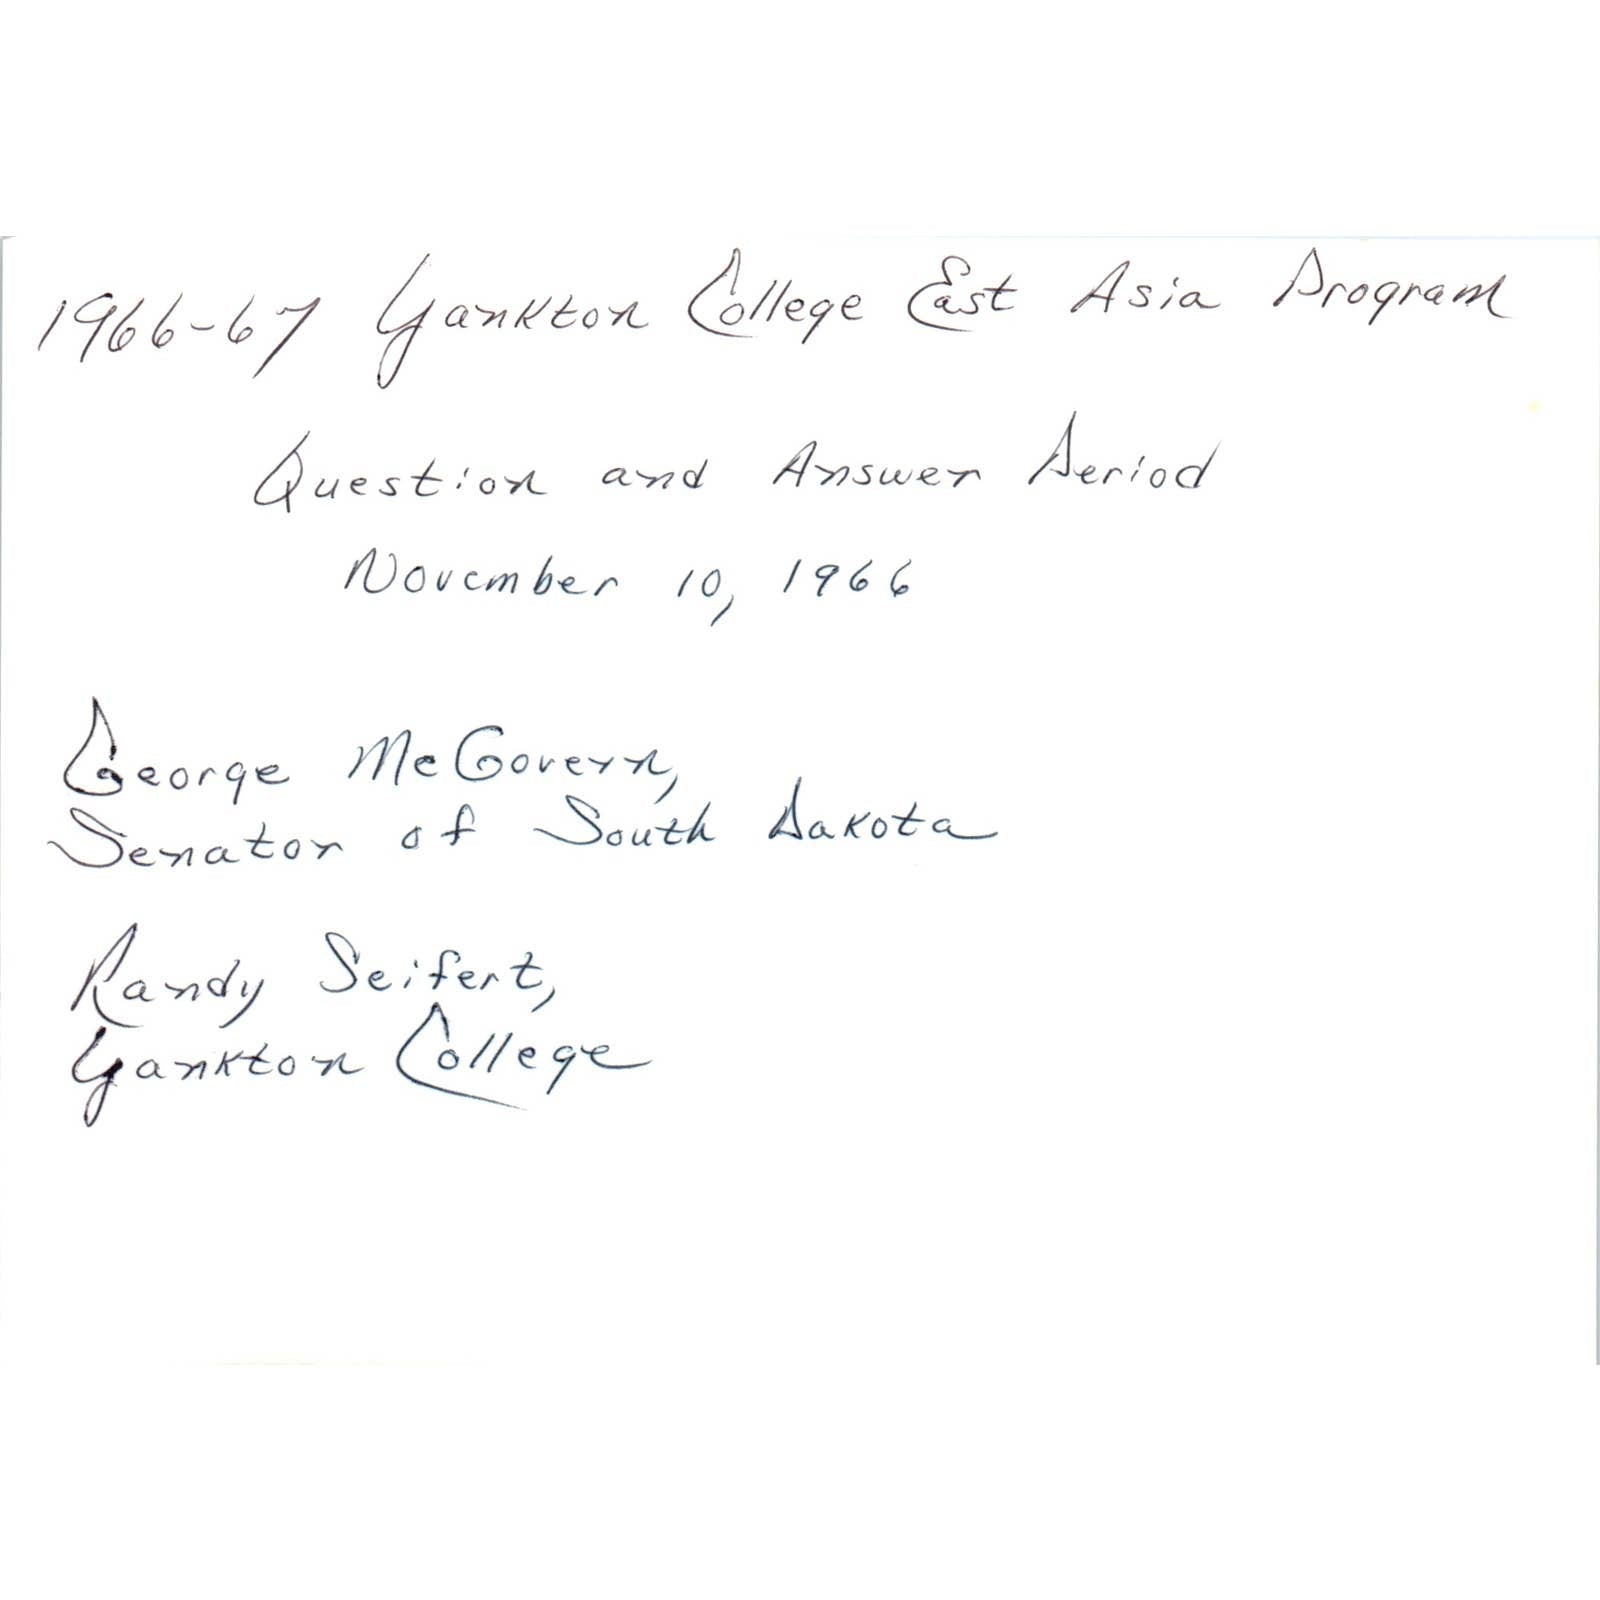 1966-67 Yankton College East Asia Program
Question and Answer Period
November 10, 1966
George McGovern,
Senator of South Dakota
Randy Seifert,
Yankton College